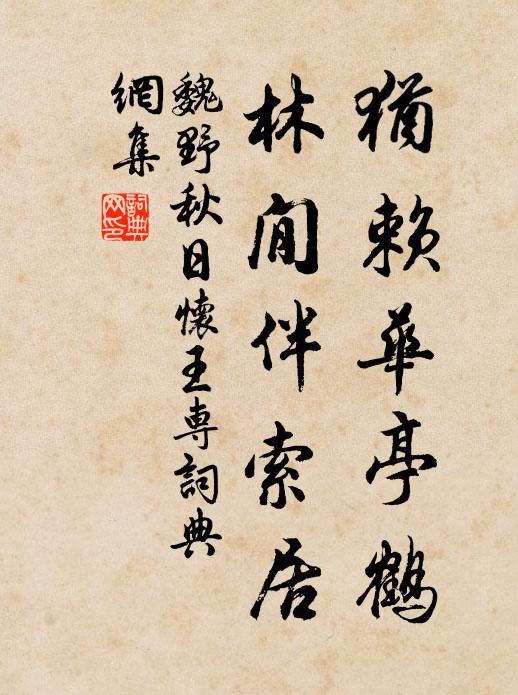 猶賴華亭鶴
林間伴索居
魏野秋日懷王專詞典
網集
詞典
网印